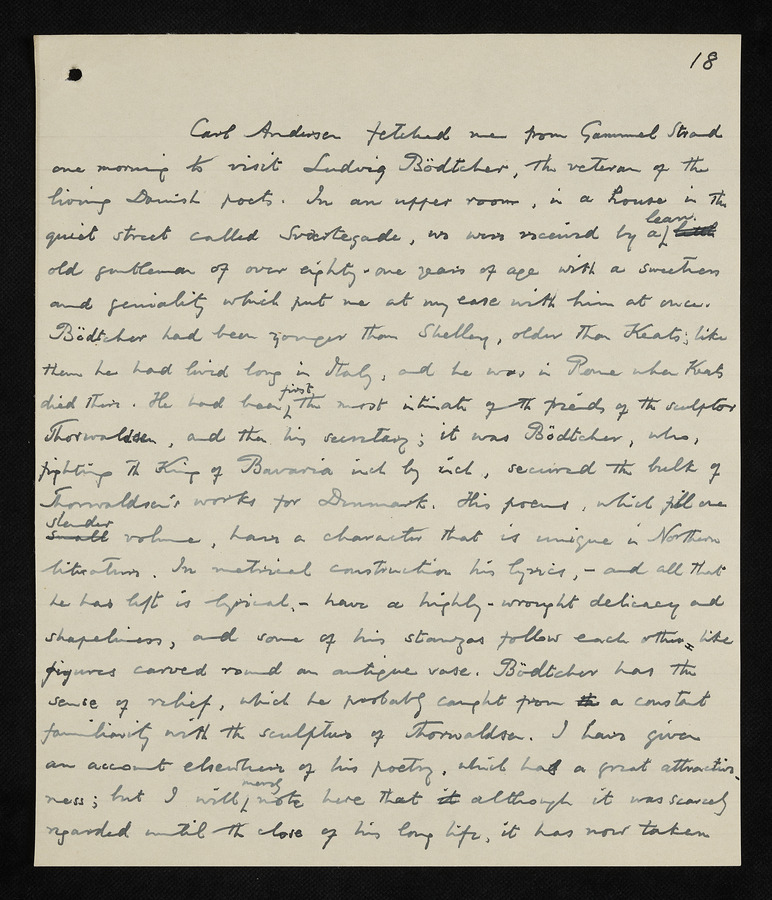 18
Carl Andersen fetched me from Gammel Strand
one morning to visit Ludvig Bödtcher, the veteran of the
living Danish poets. In an upper room, in a house in the
lean
quiet street called Sværtegade, we were received by a
old gentleman of over eighty-one years of age with a sweetness
and geniality which put me at my ease with him at once.
Bödtcher had been younger than Shelley, older than Keats; like
them he had lived long in Italy, and he was in Rome when Keats
first
died there. He had been the most intimate of the friends of the sculptor
Thorwaldsen, and then his secretary; it was Bödtcher, who,
fighting the King of Bavaria inch by inch, secured the bulk of
Thorwaldsen's works for Denmark. His poems, which fill one
slender
small volume, have a character that is unique in Northern
literature. In metrical construction his lyrics, – and all that
he has left is lyrical, – have a highly-wrought delicacy and
shapeliness, and some of his stanzas follow each other like
figures carved round an antique vase. Bödtcher has the
sense of relief, which he probably caught from the a constant
familiarity with the sculptures of Thorwaldsen. I have given
an account elsewhere of his poetry, which had a great attractive-
merely
ness; but I will note here that it although it was scarcely
regarded until the close of his long life, it has now taken